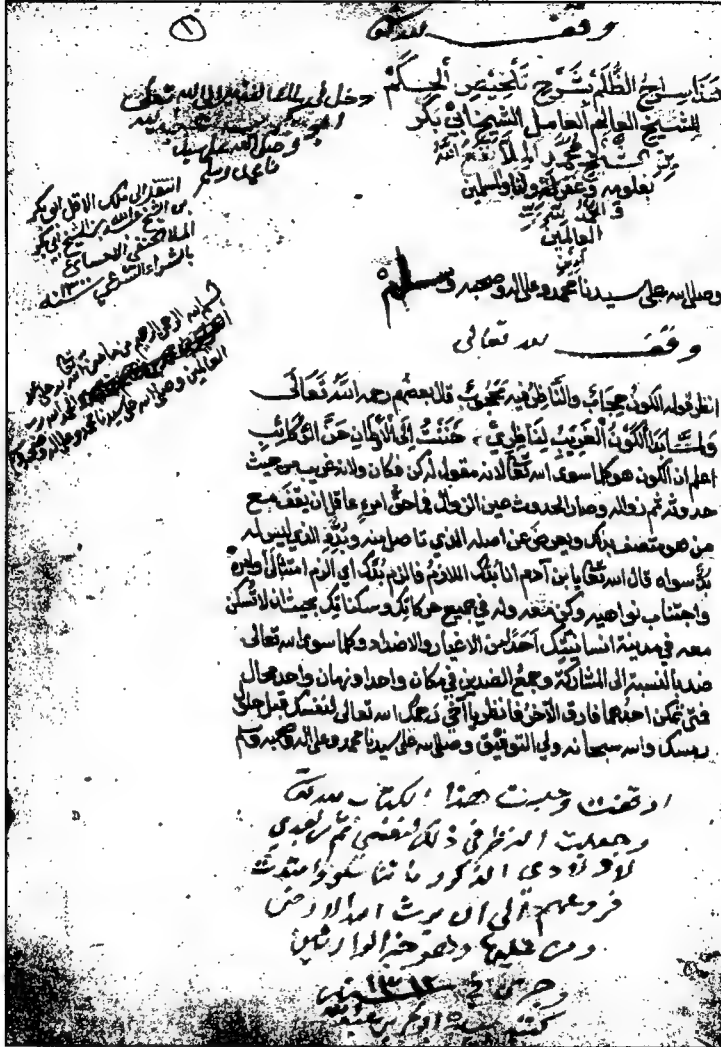 وقف لله تعالى
هذا سراج الظلم بشرح تلخيص الحكم
للشيخ العالم العامل الشيخ ابي بكر
بن الشيخ محمد الملا نفع الله
بعلومه وغفر له ولنا وللمسلمين
والحمد لله رب
العالمين
آمين
وصلى الله على سيدنا محمد وعلى اله وصحبه وسلم
وقف لله تعالى
دخل في ملك الفقير الى الله تعالى
ابو بكر بن عبد الله
وصلى الله على سيد
نا محمد وسلم
انتقل الى ملك الاقل ابي بكر
بن الشيخ عبد الله بن الشيخ ابي بكر
الملا الحنفي الاحسائي
بالشراء الشرعي سنة ١٣٠٠
بسم الله الرحمن الرحيم من
الحمد لله رب
العالمين وصلى الله على سيدنا محمد وعلى اله وصحبه
انظر قوله الكون حجاب والناظر فيه محجوب قال بعضهم رحمه الله تعالى
ولست من الكون الغريب لناظري، حننت إلى الأوطان حن الركائب
اعلم ان الكون هو كلما سوى الله تعالى لانه مقول له كن فكان ولانه غريب من حيث
حدوثه ثم زواله وصار الحدوث عين الزوال فما حق امرء عاقل ان يقف مع
من هو متصف بذلك ويعرض عن اصله الذي تاصل منه وبُدِّه الذي ليس له
بُدٌّ سواه قال الله تعالى يا ابن آدم انا بُدك اللازم فالزم بُدك اي الزم امتثال أوامره
واجتناب نواهيه وكن معه وله في جميع حركاتك وسكناتك بحيث ان لا تُسكن
معه في مدينة انسانيتك أحدًا من الاغيار والاضداد وكلما سوى الله تعالى
ضد بالنسبة الى المشاركة وجمع الضدين في مكان واحد وزمان واحد محال
فمتى تمكن احدهما فارق الآخر فانظر يا أخي رحمك الله تعالى لنفسك قبل حلول
رمسك والله سبحانه ولي التوفيق وصلى الله على سيدنا محمد وعلى اله وصحبه وسلم
اوقفت وحبست هذا الكتاب لله تعالى
وجعلت النظر في ذلك لنفسي ثم من بعدي
لاولادي الذكور ما تناسلوا وامتدت
فروعهم الى ان يرث الله الارض
ومن عليها وهو خير الوارثين
وجرى في سنة ١٣١٢
كتبه ابو بكر بن عبد الله